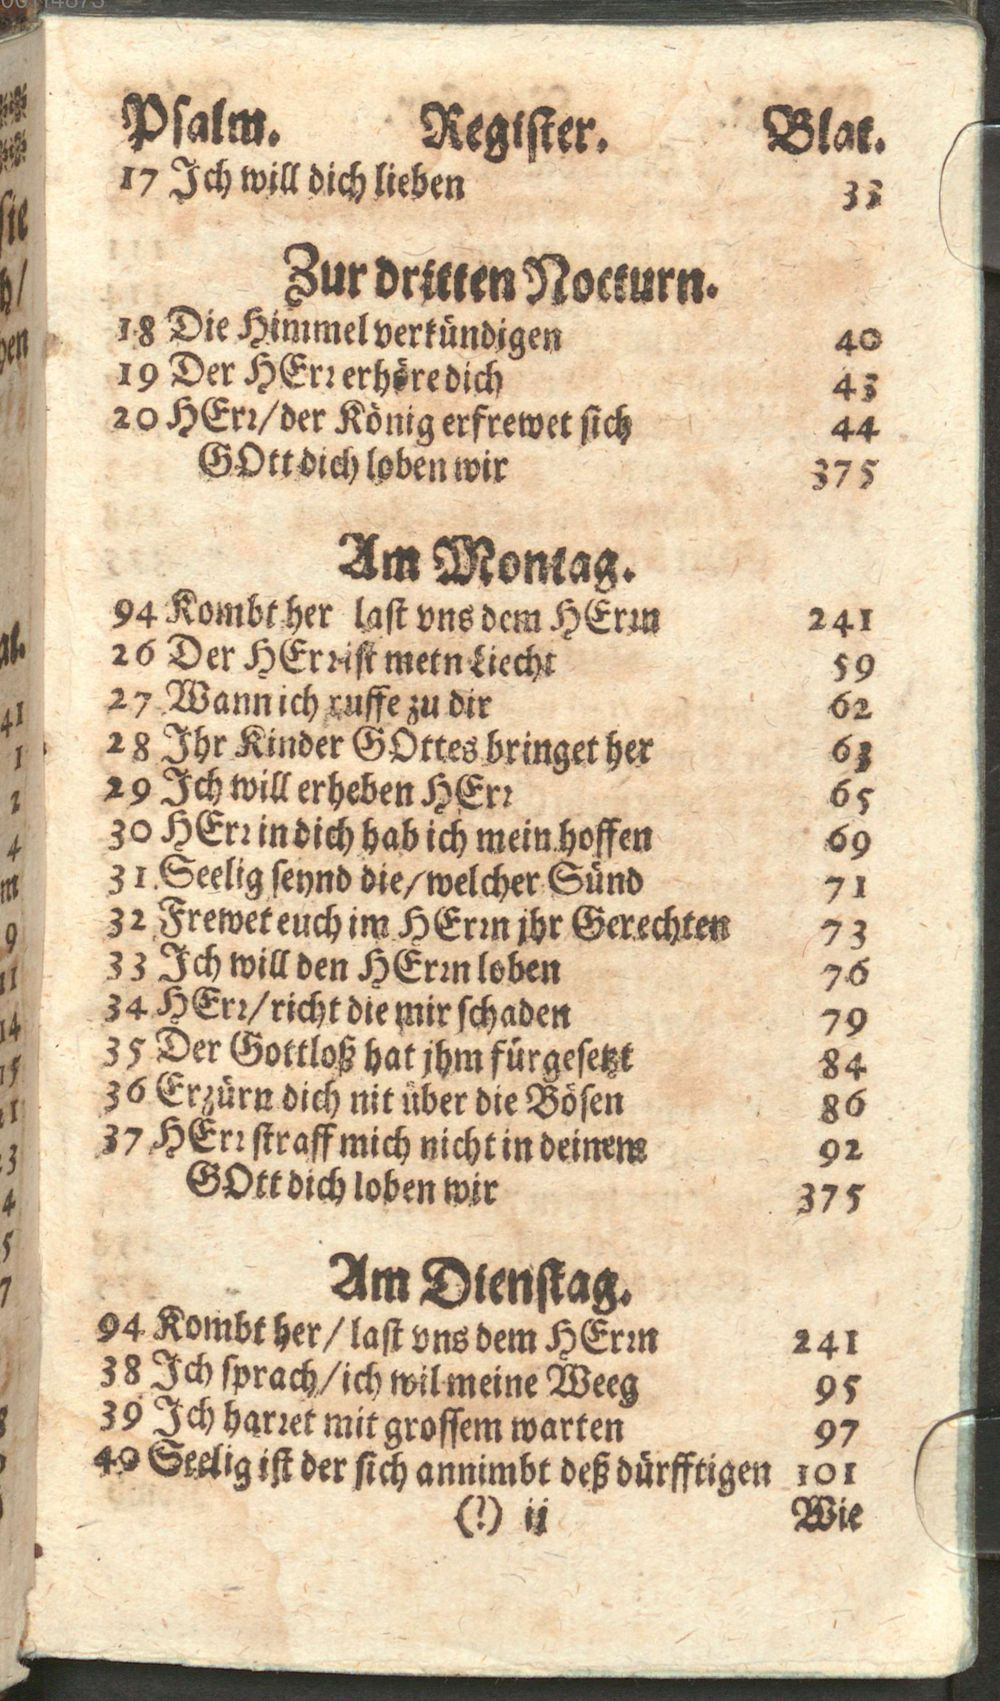 Psalm. Register. Blat.
17 Ich will dich lieben 33
Zur dritten Nocturn.
18 Die Himmel verkündigen 40
19 Der HErr erhöre dich 43
20 HErr/der König erfrewet sich 44
GOtt dich loben wir 375
Am Montag.
94 Kombt her last vns dem HErrn 241
26 Der HErr ist mein Liecht 59
27 Wann ich ruffe zu dir 62
28 Ihr Kinder GOttes bringet her 63
29 Ich will erheben HErr 65
30 HErr in dich hab ich mein hoffen 69
31 Seelig seynd die/welcher Sünd 71
32 Frewet euch im HErrn jhr Gerechten 73
33 Ich will den HErrn loben 76
34 HErr/richt die mir schaden 79
35 Der Gottloß hat jhm fürgesetzt 84
36 Erzürn dich nit über die Bösen 86
37 HErr straff mich nicht in deinem 92
GOtt dich loben wir 375
Am Dienstag.
94 Kombt her/last vns dem HErrn 241
38 Ich sprach/ich wil meine Weeg 95
39 Ich harret mit grossem warten 97
40 Seelig ist der sich annimbt deß dürfftigen 101
(?) ij Wie